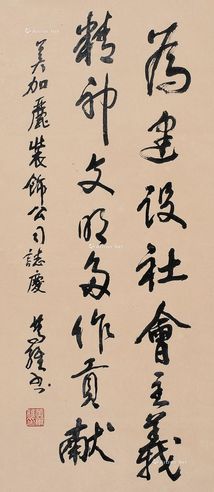 為建设社會主義
精神文明多作貢献
美加麗裝飾公司誌慶